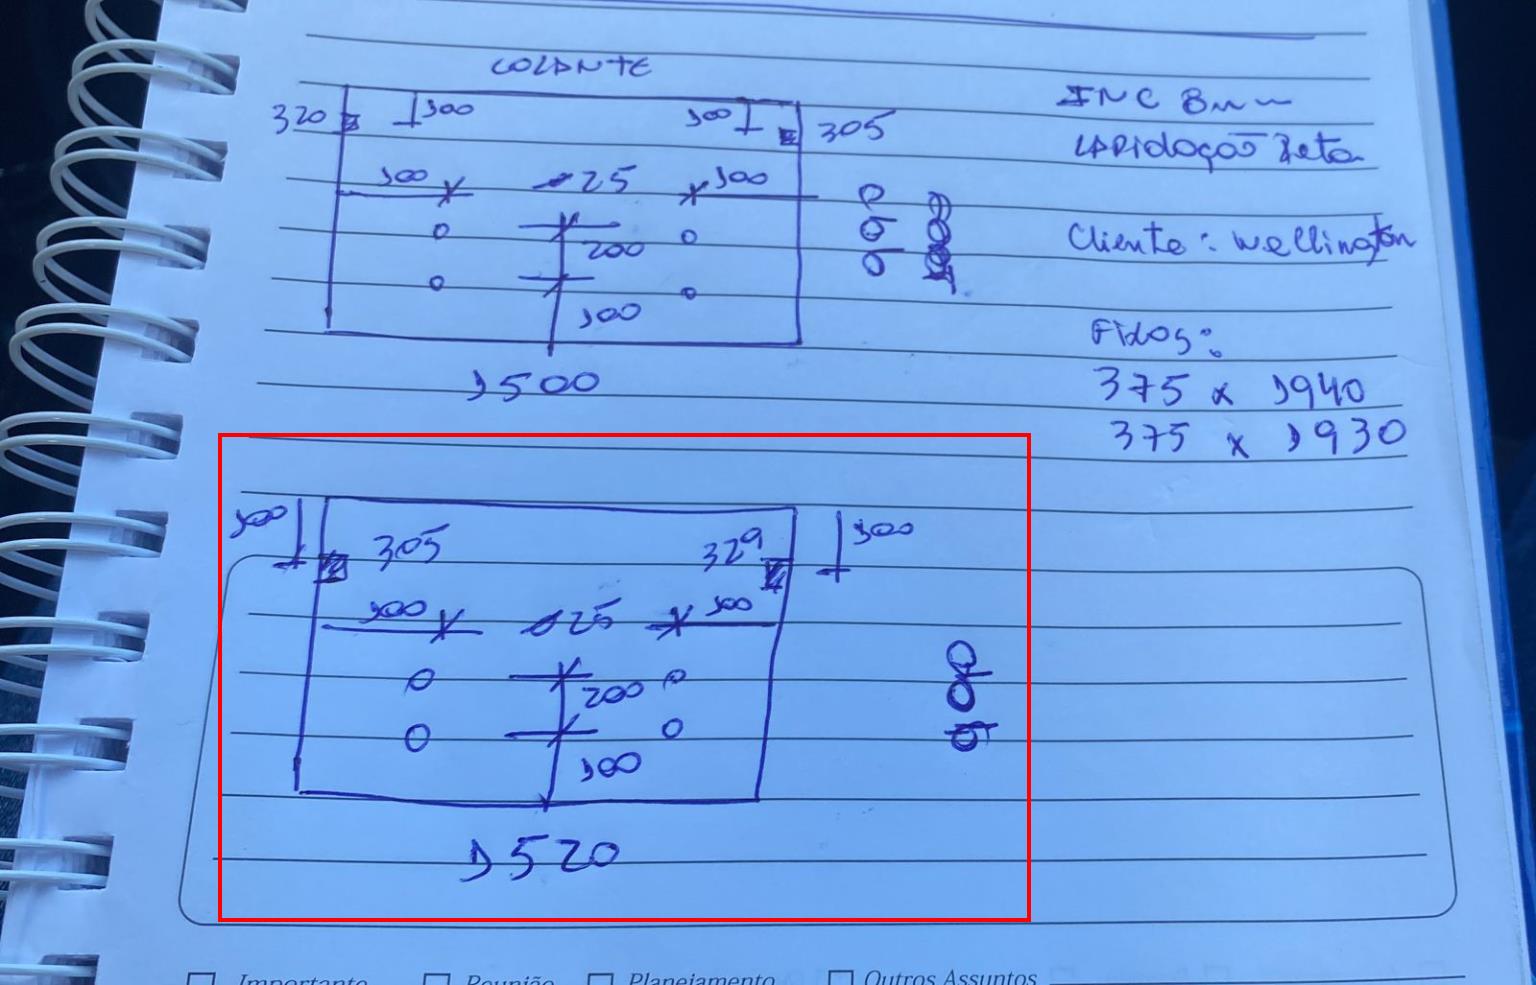 VOLANTE
320 100 100 305
100 ø25 100
200
100
1500
INC 8mm
LAPIDAÇÃO Reta
Cliente: Wellington
Fixos:
375 x 1940
375 x 1930
100 305 329 100
100 ø25 100
200
100
1520
Importante Reunião Planejamento Outros Assuntos